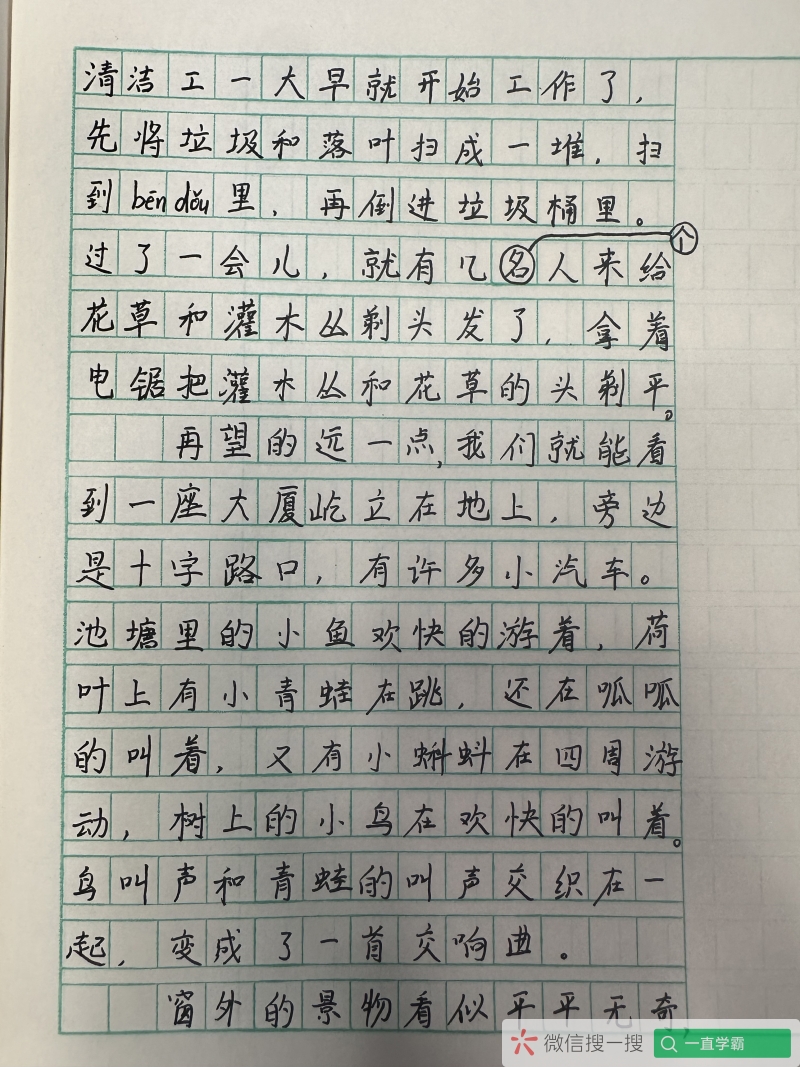 清洁工一大早就开始工作了，
先将垃圾和落叶扫成一堆，扫
到bēn dǒu里，再倒进垃圾桶里。
过了一会儿，就有几名人来给
个
花草和灌木丛剃头发了，拿着
电锯把灌木丛和花草的头剃平。
再望的远一点，我们就能看
到一座大厦屹立在地上，旁边
是十字路口，有许多小汽车。
池塘里的小鱼欢快的游着，荷
叶上有小青蛙在跳，还在呱呱
的叫着，又有小蝌蚪在四周游
动，树上的小鸟在欢快的叫着。
鸟叫声和青蛙的叫声交织在一
起，变成了一首交响曲。
窗外的景物看似平平无奇，
微信搜一搜
一直学霸